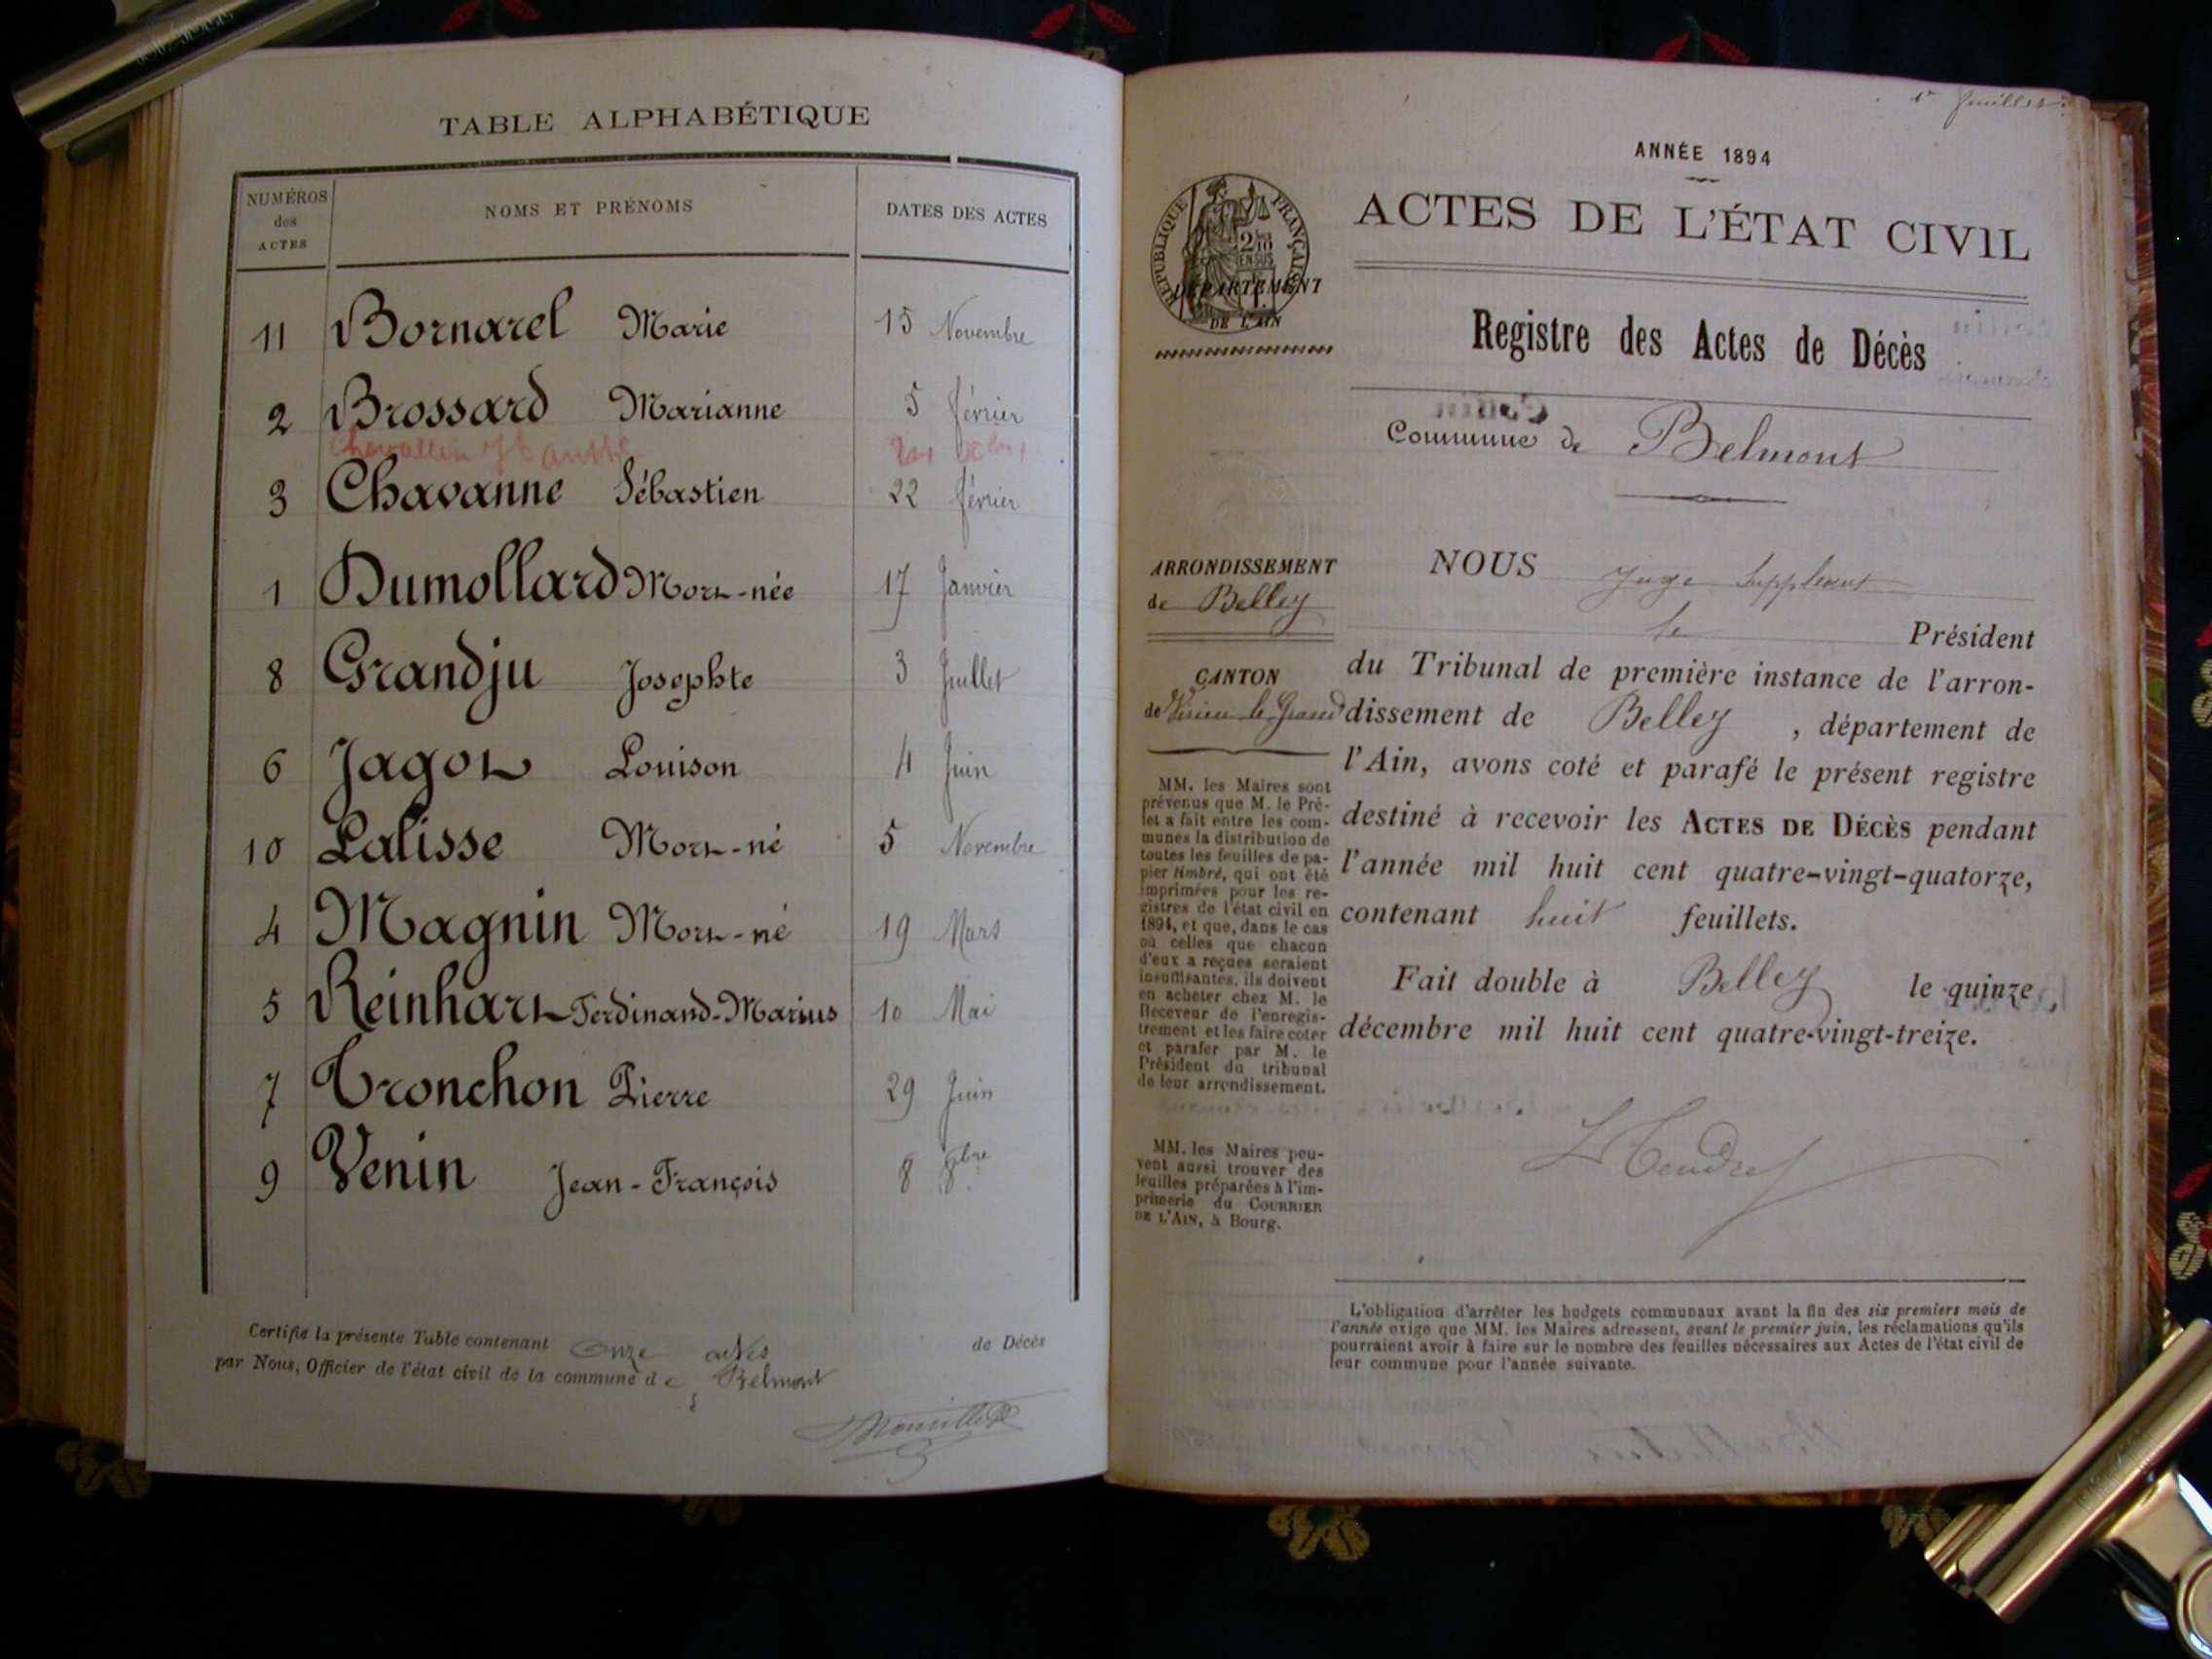 TABLE ALPHABÉTIQUE
NUMÉROS des ACTES
NOMS ET PRÉNOMS
DATES DES ACTES
11 Bornarel Marie 15 Novembre
2 Brossard Marianne 5 février
3 Chavanne Sébastien 22 février
1 Dumollard Mort-née 17 Janvier
8 Grandju Josephte 3 Juillet
6 Jagot Louison 4 Juin
10 Lalisse Mort-né 5 Novembre
4 Magnin Mort-né 19 Mars
5 Reinhart Ferdinand-Marius 10 Mai
7 Tronchon Pierre 29 Juin
9 Venin Jean-François 8 8bre
Certifié la présente Table contenant onze actes de Décès
par Nous, Officier de l'état civil de la commune de Belmont
1er feuillet
ANNÉE 1894
ACTES DE L'ÉTAT CIVIL
RÉPUBLIQUE FRANÇAISE
DÉPARTEMENT
DE L'AIN
Registre des Actes de Décès
Commune de Belmont
ARRONDISSEMENT
de Belley
CANTON
de Virieu le Grand
MM. les Maires sont
prévenus que M. le Pré-
fet a fait entre les com-
munes la distribution de
toutes les feuilles de pa-
pier timbré, qui ont été
imprimées pour les re-
gistres de l'état civil en
1894, et que, dans le cas
où celles que chacun
d'eux a reçues seraient
insuffisantes, ils doivent
en acheter chez M. le
Receveur de l'enregis-
trement et les faire coter
et parafer par M. le
Président du tribunal
de leur arrondissement.
MM. les Maires peu-
vent aussi trouver des
feuilles préparées à l'im-
primerie du COURRIER
DE L'AIN, à Bourg.
NOUS Juge Suppléant
le Président
du Tribunal de première instance de l'arron-
dissement de Belley, département de
l'Ain, avons coté et parafé le présent registre
destiné à recevoir les ACTES DE DÉCÈS pendant
l'année mil huit cent quatre-vingt-quatorze,
contenant huit feuillets.
Fait double à Belley le quinze
décembre mil huit cent quatre-vingt-treize.
L'obligation d'arrêter les budgets communaux avant la fin des six premiers mois de
l'année exige que MM. les Maires adressent, avant le premier juin, les réclamations qu'ils
pourraient avoir à faire sur le nombre des feuilles nécessaires aux Actes de l'état civil de
leur commune pour l'année suivante.